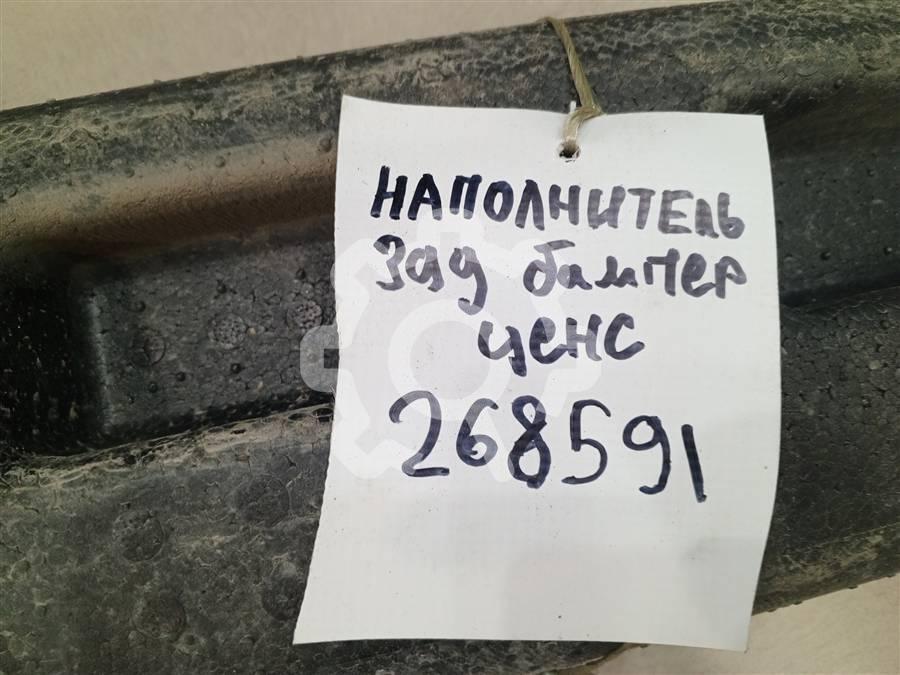 НАПОЛНИТЕЛЬ
Зад бампер
ценс
268591